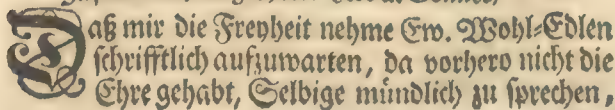 Daß mir die Freyheit nehme Ew. Wohl-Edlen
schrifftlich aufzuwarten, da vorhero nicht die
Ehre gehabt, Selbige mündlich zu sprechen